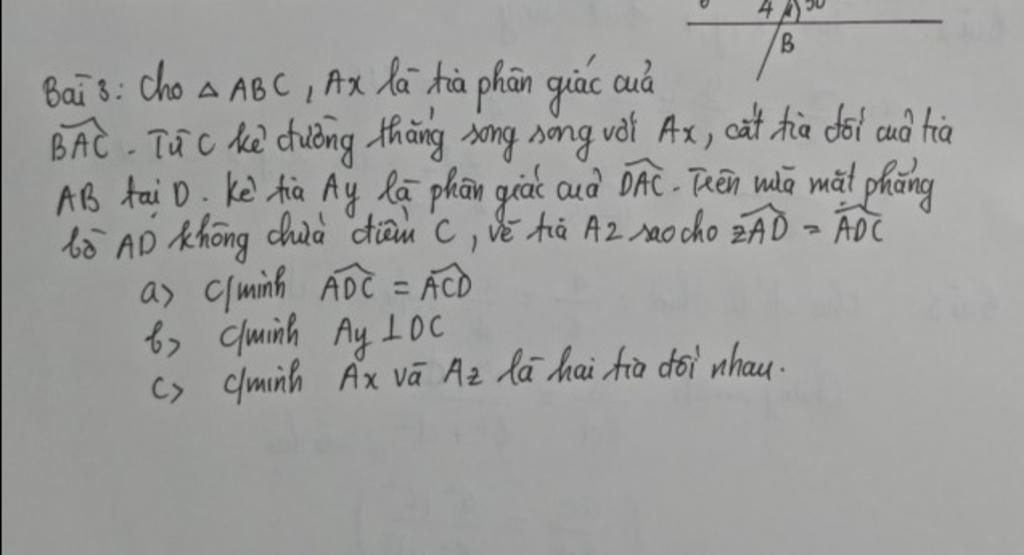 4 50
B
Bài 3: Cho △ ABC, Ax là tia phân giác của
BAC. Từ C kẻ đường thẳng song song với Ax, cắt tia đối của tia
AB tại D. Kẻ tia Ay là phân giác của DAC. Trên nửa mặt phẳng
bờ AD không chứa điểm C, vẽ tia Az sao cho zAD = ADC
a> C/minh ADC = ACD
b> C/minh Ay ⊥ DC
c> C/minh Ax và Az là hai tia đối nhau.